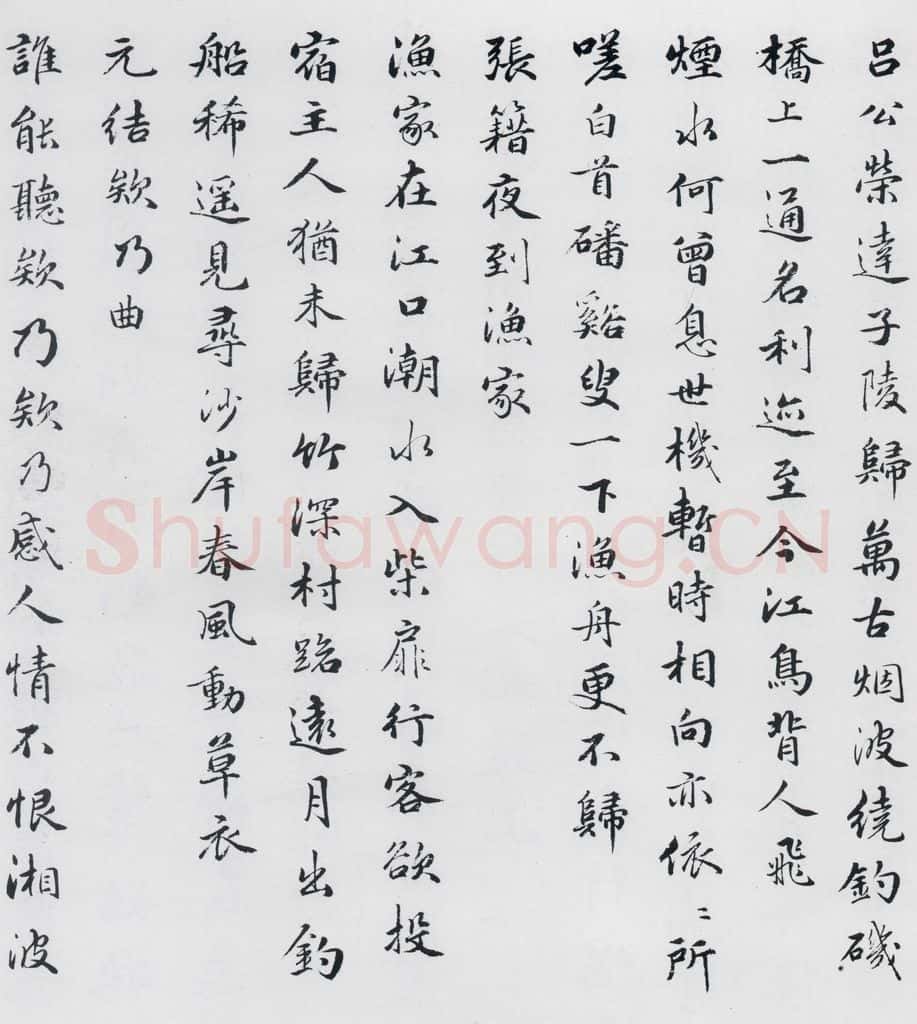 呂公榮達子陵歸萬古烟波繞釣磯
橋上一通名利迹至今江鳥背人飛
煙水何曾息世機暫時相向亦依〻所
嗟白首磻谿叟一下漁舟更不歸
張籍夜到漁家
漁家在江口潮水入柴扉行客欲投
宿主人猶未歸竹深村路遠月出釣
船稀遥見尋沙岸春風動草衣
元结欸乃曲
誰能聽欸乃欸乃感人情不恨湘波
Shufawang.CN